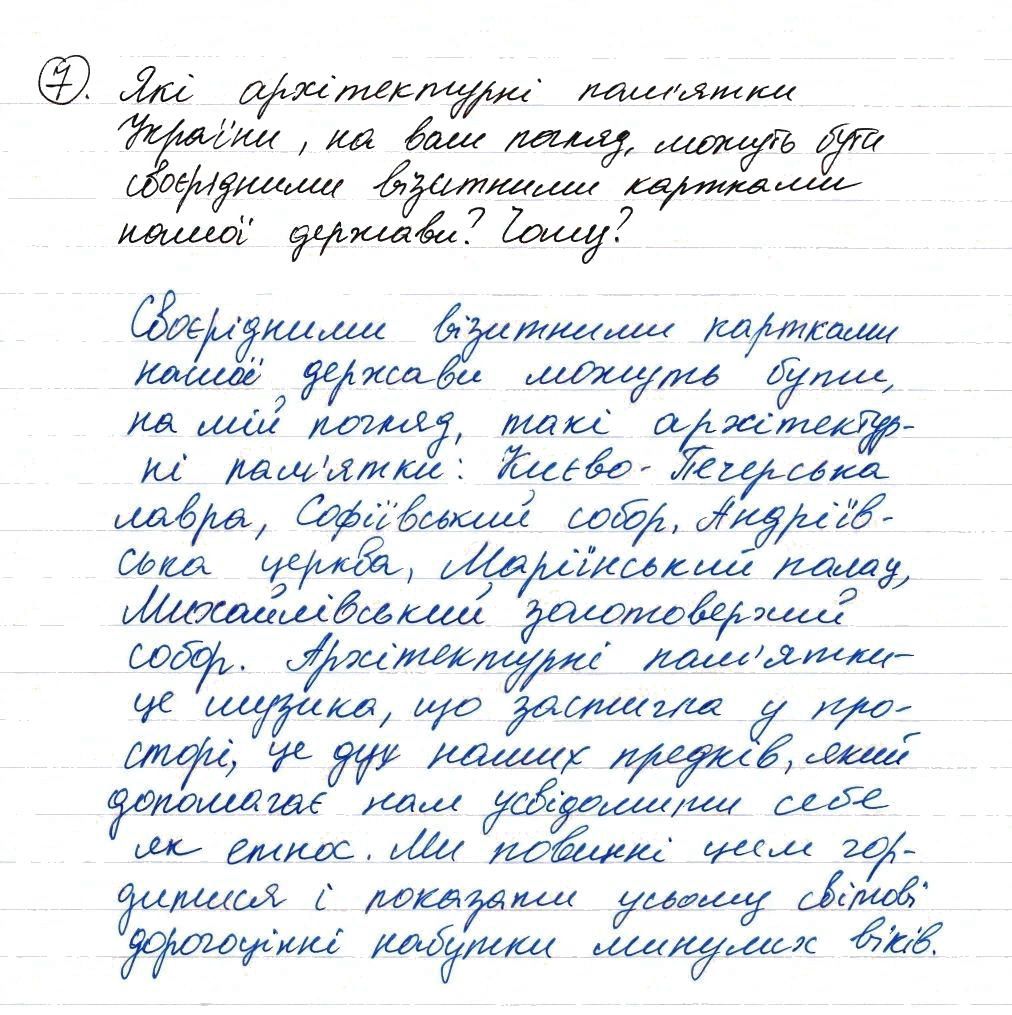 7. Які архітектурні пам'ятки
України, на ваш погляд, можуть бути
своєрідними візитними картками
нашої держави? Чому?
Своєрідними візитними картками
нашої держави можуть бути,
на мій погляд, такі архітектур-
ні пам'ятки: Києво-Печерська
лавра, Софіївський собор, Андріїв-
ська церква, Маріїнський палац,
Михайлівський золотоверхий
собор. Архітектурні пам'ятки-
це музика, що застигла у про-
сторі, це дух наших предків, який
допомагає нам усвідомити себе
як етнос. Ми повинні цим гор-
дитися і показати усьому світові
дорогоцінні набутки минулих віків.